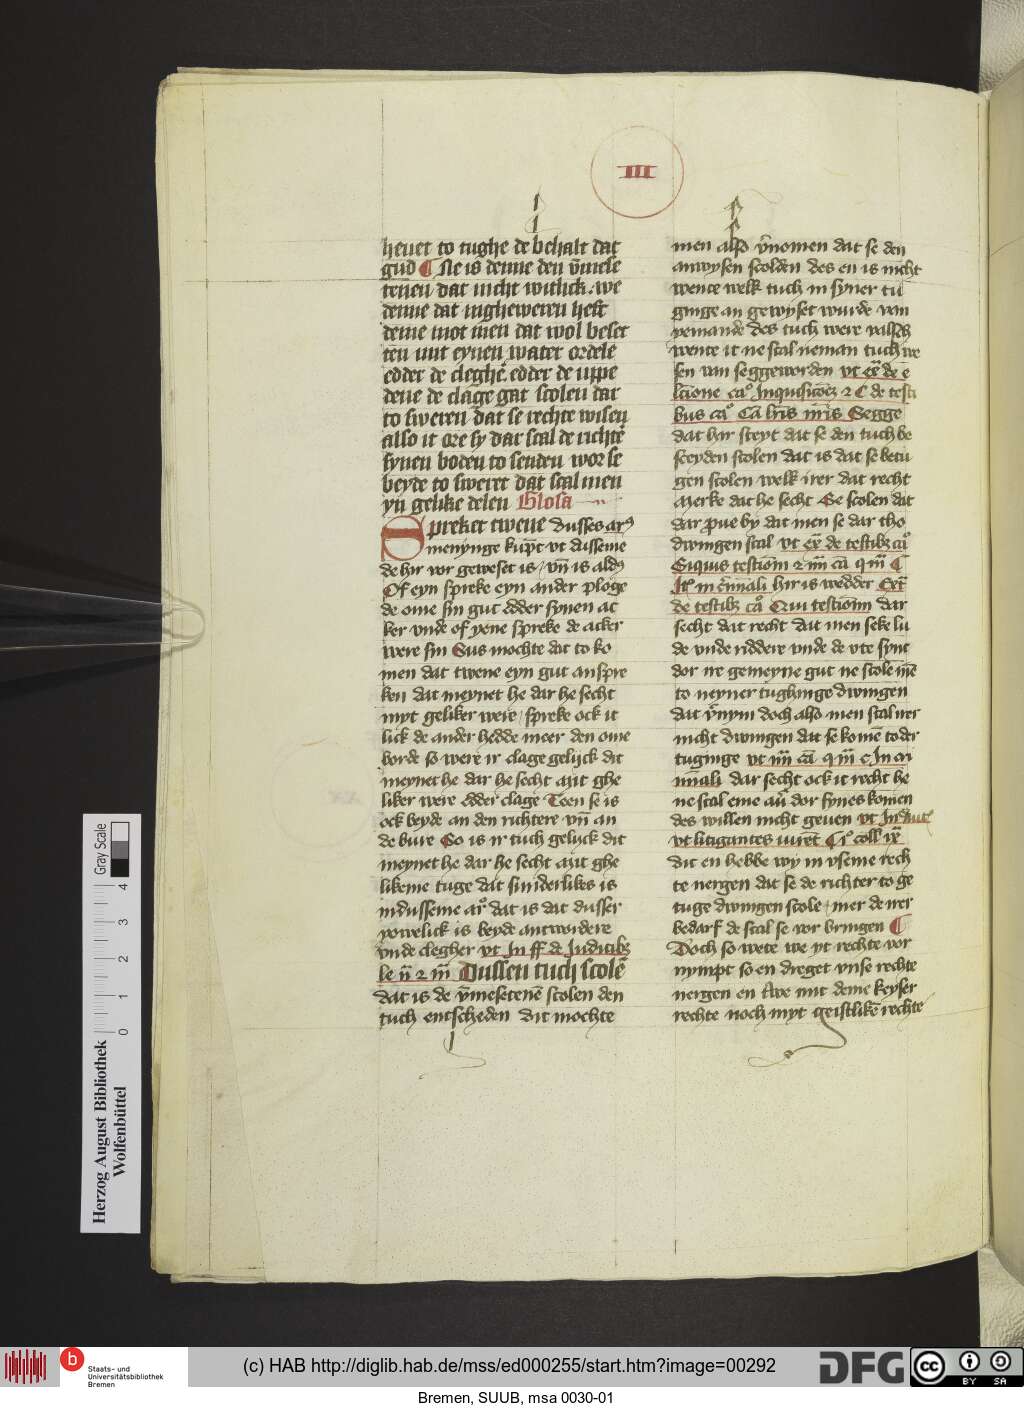 III
heuet to tughe de behalt dat
gud ¶ Ne is denne den v̄mese
tenen dat nicht witlick. we
denne dat ingheweren heft
deme mot men dat wol beset
ten mit eynen water ordele
edder de clegher edder de uppe
deme de clage gat scolen dar
to sweren dat se rechte wisen
also it ore sy dat scal de richter
synen boden to senden wor se
beyde to sweret dat scal men
yn gelike delen Glosa
Spreket twene dusses ar
menynge kūpt vt dusseme
de hir vor geweset is / vn̄ is aldꝰ
Of eyn spreke eyn ander ploge
de ome sin gut edder synen ac
ker vnde of yene spreke de acker
were sin Sus mochte dat to ko
men dat twene eyn gut anspre
ken dat meynet he dar he secht
myt geliker were / spreke ock it
lick de ander hedde meer den ome
borde so were ir clage gelijck dit
meynet he dar he secht mit ghe
liker were edder clage Teen se is
ock beyde an den richtere vn̄ an
de bure So is ir tuch gelijck dit
meynet he dar he secht mit ghe
likeme tuge dat sunderlikes is
in dusseme ar dat is dat dusser
yowelick is beyde antwordere
vnde clegher vt In ff de Iudicibꝫ
le ii 2 iii Dussen tuch scolē
dat is de v̄mesetenē scolen den
tuch entscheden dit mochte
men also v̄nomen dat se den
anwysen scolden des en is nicht
wente welk tuch in syner tu
ginge an gewyset wurde van
yemande des tuch were valsch
wente it ne scal neman tuch we
sen van seggeworden vt ex̄ de e
lcione ca Inquisicōeꝫ 2 C de testi
bus ca Cā lris m̄ris Segge
dat hir steyt dat se den tuch be
sceyden scolen dat is dat se betu
gen scolen welk irer dat recht
Merke dat he secht Se scolen dat
dar proue by dat men se dar tho
dwingen scal vt ex̄ de testibꝫ ca
Siquis testiom 2 iiii cā q iii ¶
It in c̄minali hir is wedder Extͣ
de testibꝫ cā Qui testiom dar
secht dat recht dat men seke lu
de vnde riddere vnde de vte synt
dor ire gemeyne gut ne scole mē
to neyner tughinge dwingen
dat v̄nym doch also men scal irer
nicht dwingen dat se komē to der
tuginge vt iiii cā q iii c In cri
minali dar secht ock it recht he
ne scal eme au dor synes komen
des willen nicht geuen vt In aut
vt litigantes iuret Ci coll ix
dit en hebbe wy in vseme rech
te nergen dat se de richter to ge
tuge dwingen scole / mer de irer
bedarf de scal se vor bringen ¶
Doch so wete we yt rechte vor
nympt so en dreget vnse rechte
nergen en twe mit deme keyser
rechte noch myt geistlikē rechte
Herzog August Bibliothek
Wolfenbüttel
0 1 2 3 4 Gray Scale
b Staats- und
Universitätsbibliothek
Bremen
(c) HAB http://diglib.hab.de/mss/ed000255/start.htm?image=00292
DFG
cc BY SA
Bremen, SUUB, msa 0030-01